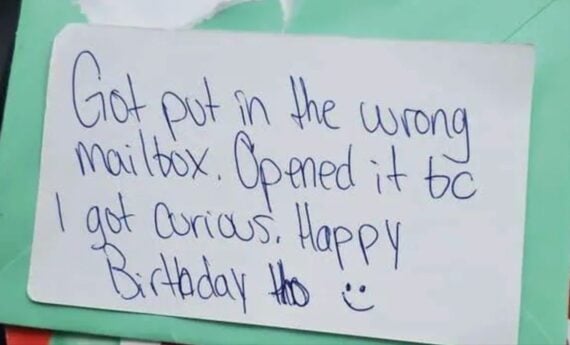 Got put in the wrong
mailbox. Opened it bc
I got curious. Happy
Birthday tho :)